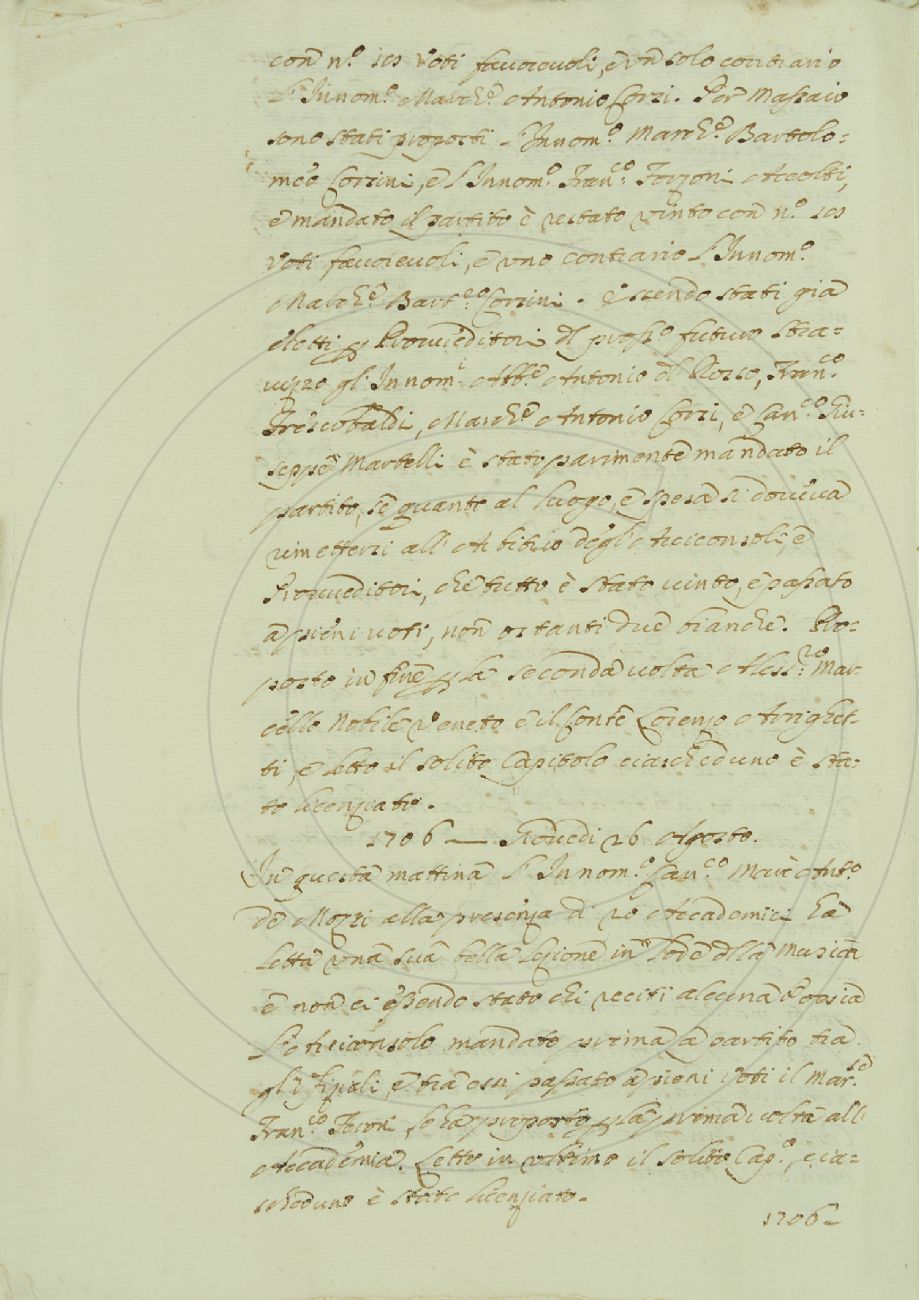 con n.º 101 voti favorevoli, e un solo contrario
l'Innom.º March.e Antonio Corsi. Per Massaio
sono stati proposti l'Innom.º March.e Bartolo=
meo Corsini, e l'Innom.º Fran.co Forzoni Accolti,
e mandato il partito è restato vinto con n.º 101
voti favorevoli, e uno contrario l'Innom.º
March.e Bart.eo Corsini. Essendo stati già
eletti p Provveditori del pross.º futuro Stra=
vizzo gl'Innom.i Abb.e Antonio del Rosso, Fran.co
Frescobaldi, March.e Antonio Corsi, e Can.co Giu=
seppe Martelli è stato parimente mandato il
partito, se quanto al luogo, e spesa si doveva
rimettersi all'Arbitrio degl'Arciconsoli, e
Provveditori, che tutto è stato vinto, e passato
a pieni voti, non ostanti due bianche. Pro=
posto in fine p la seconda volta Aless.ro Mar=
cello Nobile Veneto e il Conte Lorenzo Arrighet=
ti, e letto il solito Capitolo ciascheduno è sta=
to licenziato.
1706 — Giovedi 26 Agosto.
In questa mattina l'Innom.º Can.co Marc'Ant.º
de Mozzi alla presenza di 20 Accademici ha
letta una sua bella lezione in lode della Musica
e non ci essendo stato chi reciti alcuna Poesia
l'Arciconsolo mandato prima a partito tra
gl'Ufiziali, e tra essi passato a pieni voti il Mar.se
Fran.co Feroni, lo ha proposto p la prima volta all'
Accademia. Letto in ultimo il solito Cap.º, cia=
scheduno è stato licenziato.
1706=